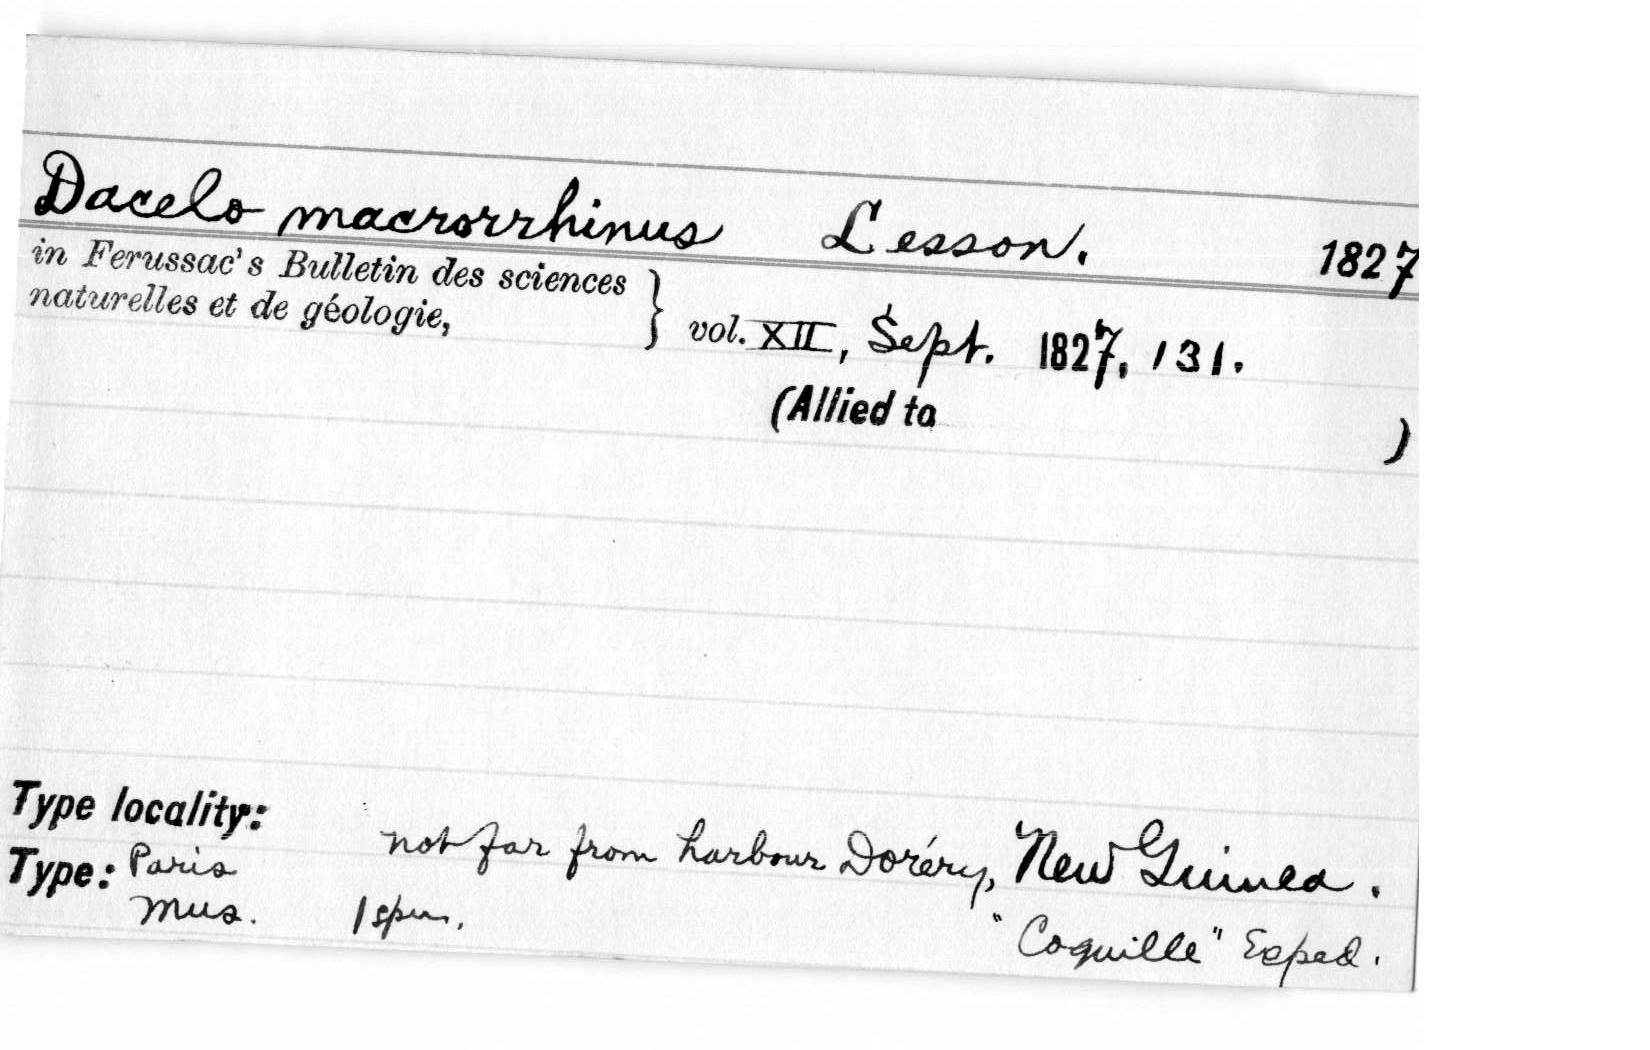 Dacelo macrorrhinus Lesson. 1827
in Ferussac's Bulletin des sciences
naturelles et de géologie, } vol. XII, Sept. 1827, 131.
(Allied to )
Type locality:
not far from harbour Doréry, New Guinea.
Type: Paris
Mus. 1 spm. "Coquille" Exped.